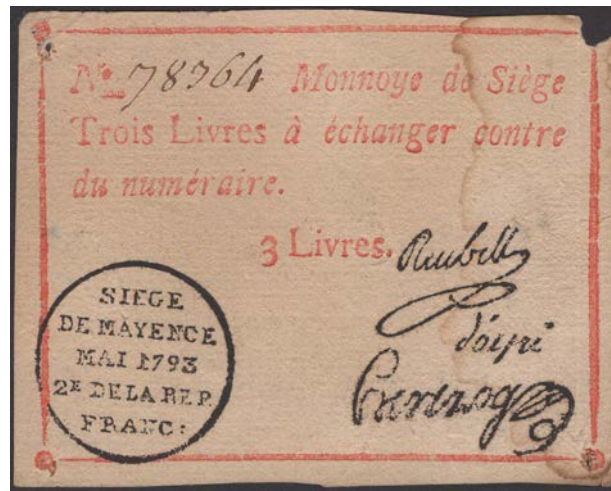 No. 78764 Monnoye de Siège
Trois Livres à échanger contre
du numéraire.
3 Livres.
Reubell
SIEGE
DE MAYENCE
MAI 1793
2E DE LA REP.
FRANC: